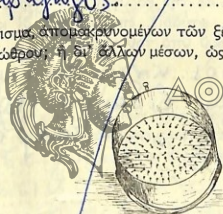 πισμα, ἀπομακρυνομένων τῶν ξέ
ώθρου, ἢ δι' ἄλλων μέσων, ὡς